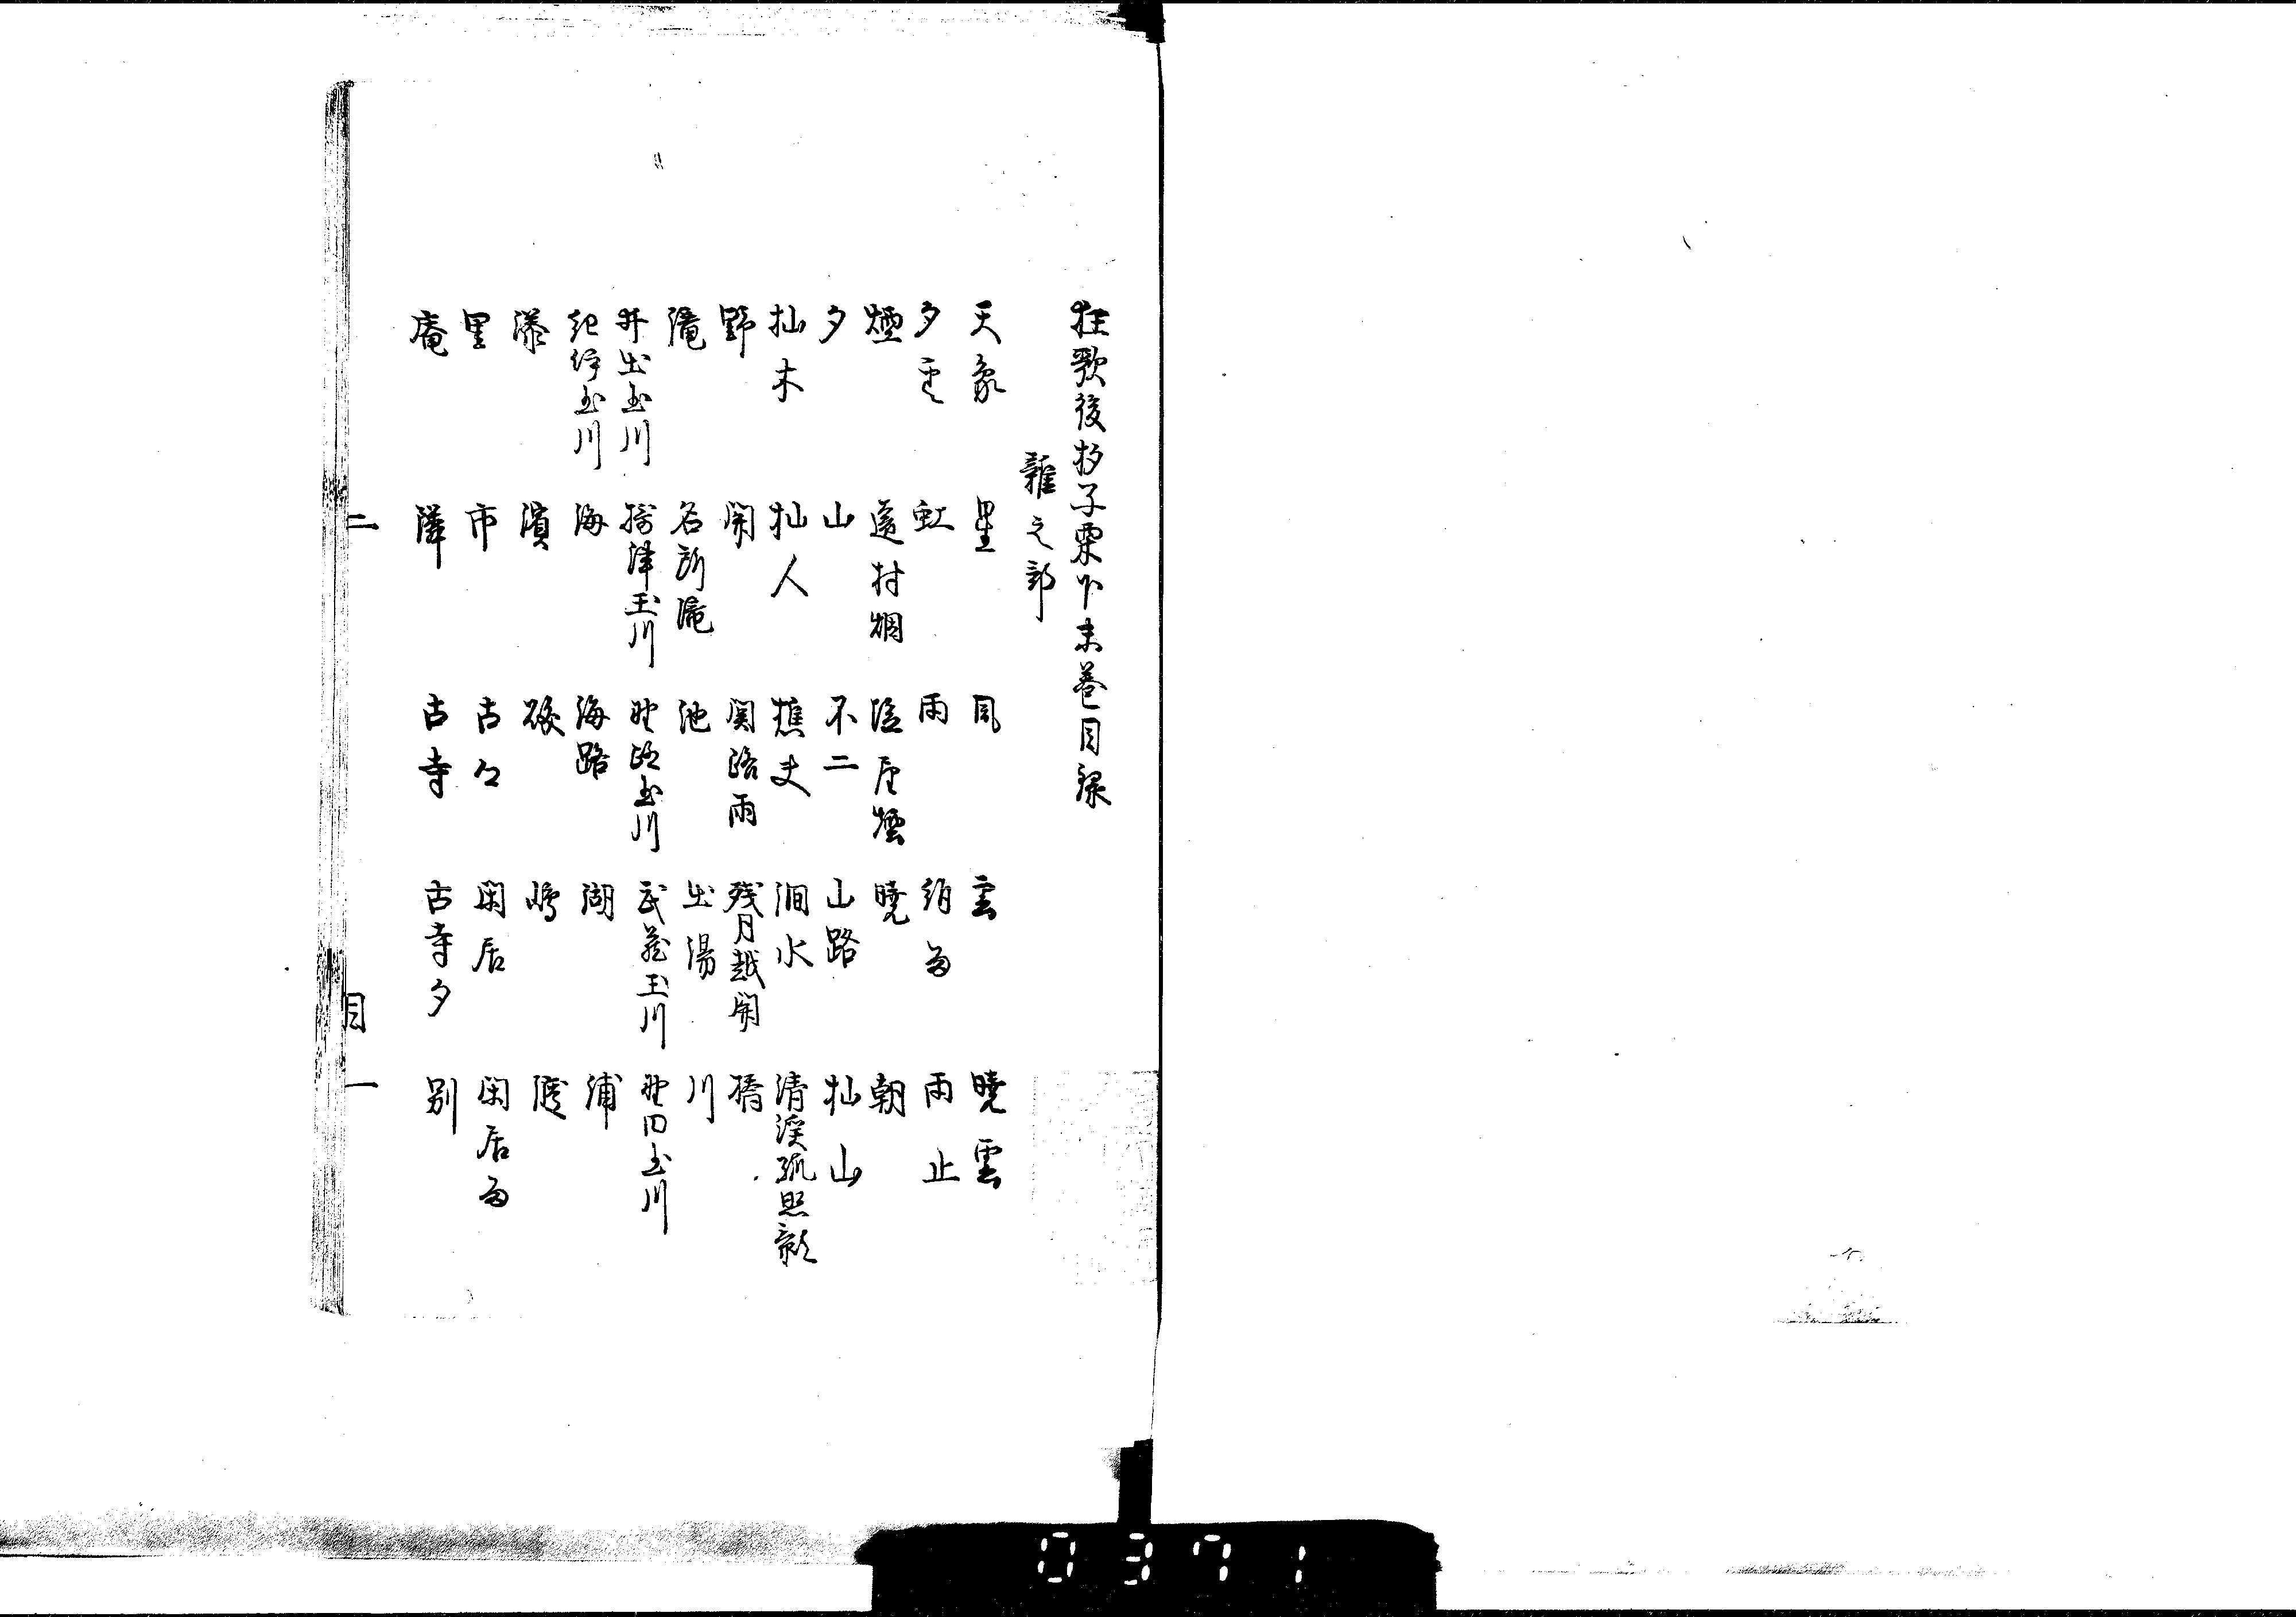 狂歌後杓子栗下末巻目録
雑之部
天象 星 風 雲 暁雲
夕雲 虹 雨 絹雨 雨止
煙 遠村烟 塩屋煙 暁 朝
夕 山 不二 山路 杣山
杣木 杣人 樵夫 澗水 清渓孤照影
野 関 関路雨 残月越関 橋
滝 名所滝 池 出湯 川
井出玉川 擣津玉川 野路玉川 武蔵玉川 野田玉川
紀伊玉川 海 海路 湖 浦
濱 磯 嶋 渡
里 市 古々 閑居 閑居雨
庵 隣 古寺 古寺夕 別
二 目 一
0371